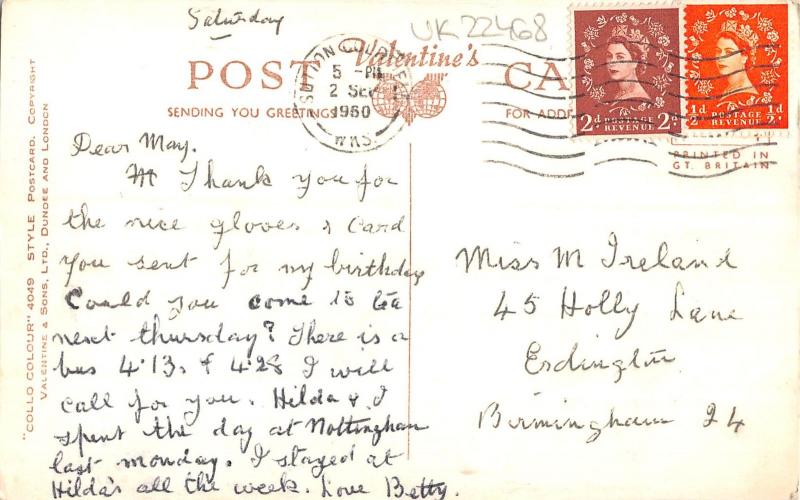 Saturday
UK 22468
Valentine's
POST CA
SENDING YOU GREETINGS
FOR ADD
SUTTON COLD
5 - PM
2 SEP
1960
WKS.
2d POSTAGE REVENUE 2d
½d POSTAGE REVENUE ½d
PRINTED IN
GT. BRITAIN
"COLLO COLOUR" 4049 STYLE POSTCARD. COPYRIGHT
VALENTINE & SONS, LTD., DUNDEE AND LONDON
Dear May.
Thank you for
the nice gloves & card
you sent for my birthday
Could you come to tea
next thursday? There is a
bus 4.13. & 4.28 I will
call for you. Hilda & I
spent the day at Nottingham
last monday. I stayed at
Hilda's all the week. Love Betty.
Miss M Ireland
45 Holly Lane
Erdington
Birmingham 24